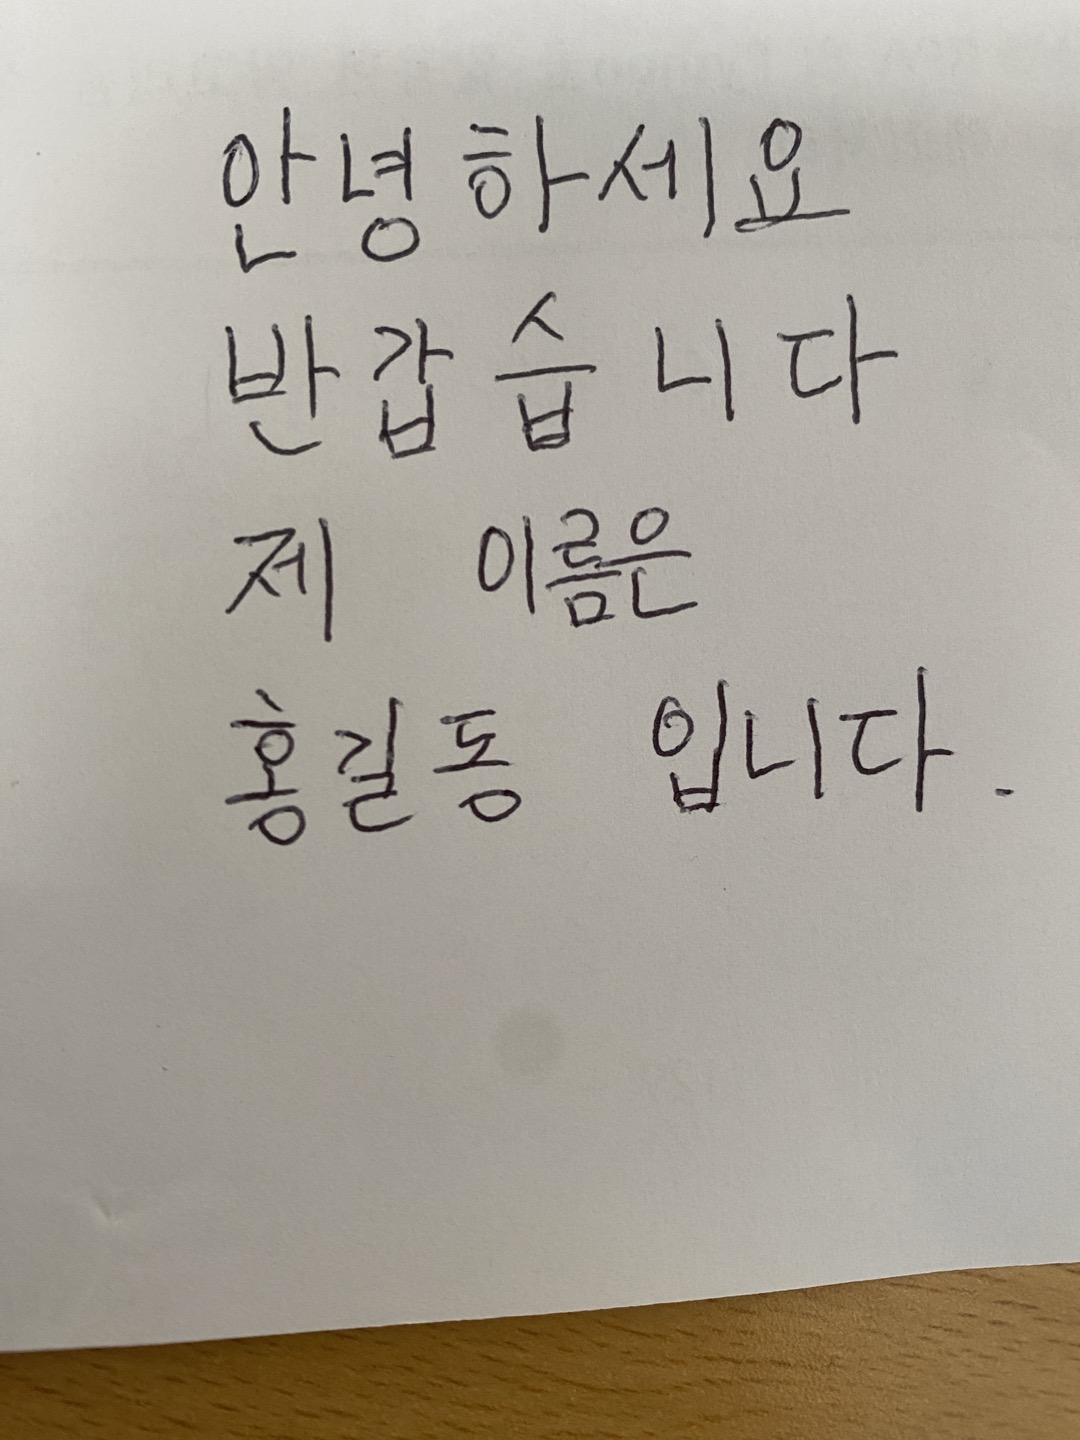 안녕하세요
반갑습니다
제 이름은
홍길동 입니다.